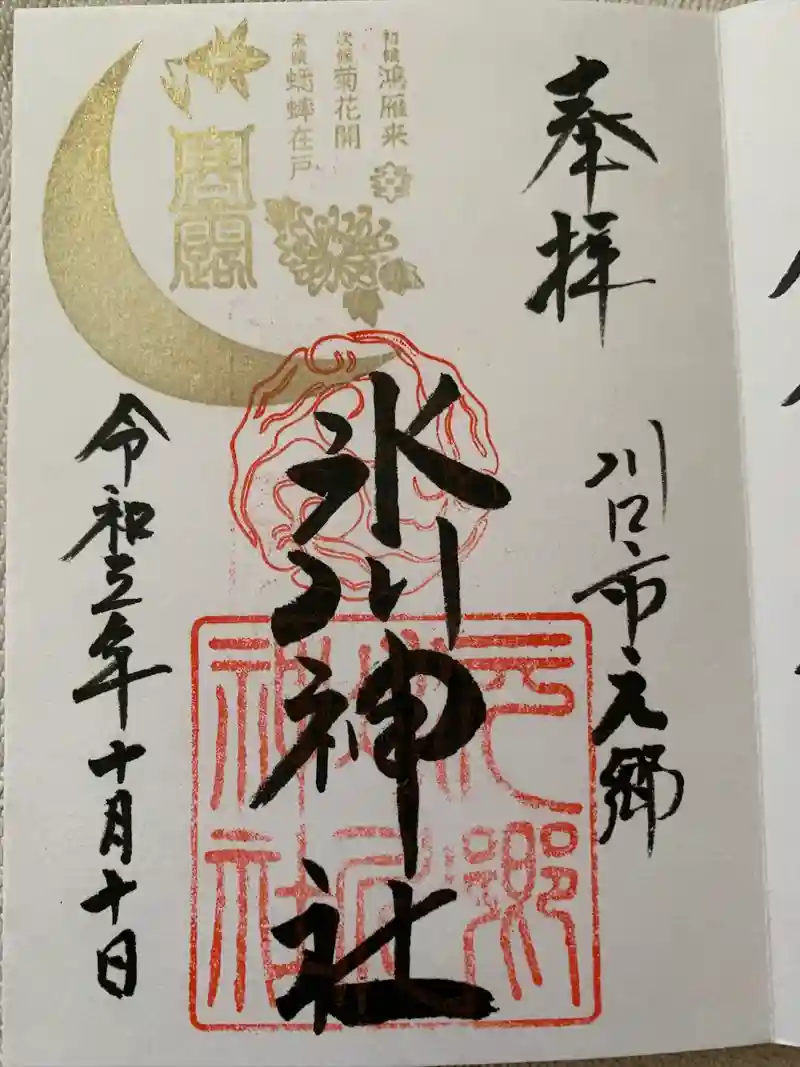 奉拝
川口市元郷
初候 鴻雁来
次候 菊花開
末候 蟋蟀在戸
寒露
氷川神社
令和三年十月十日
元郷
神社